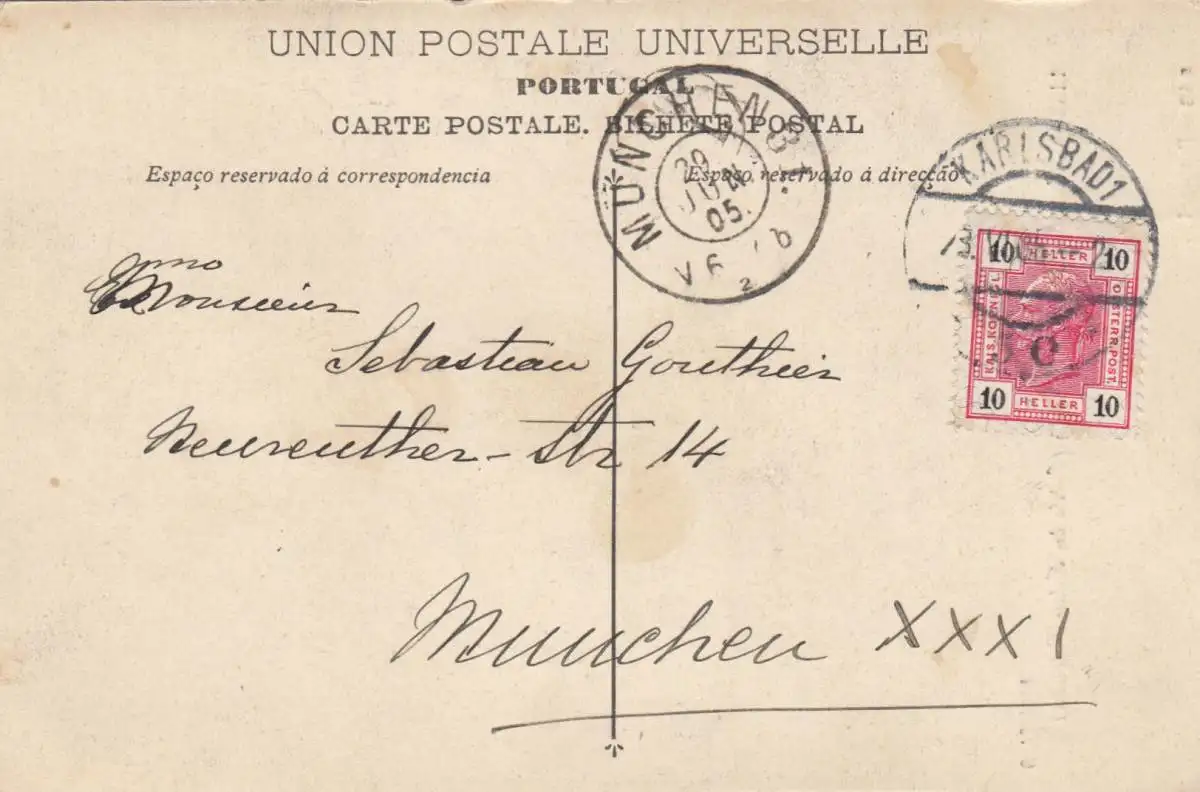 UNION POSTALE UNIVERSELLE
PORTUGAL
CARTE POSTALE. BILHETE POSTAL
Espaço reservado á correspondencia
Espaço reservado á direcção
MÜNCHEN
JUN
05.
KARLSBAD 1
10 HELLER 10
KAIS. KOENIGL.
OESTERR. POST.
10 HELLER 10
Exmo Monsieur
Sebastian Gouthier
Neureuther-Str 14
München XXXI